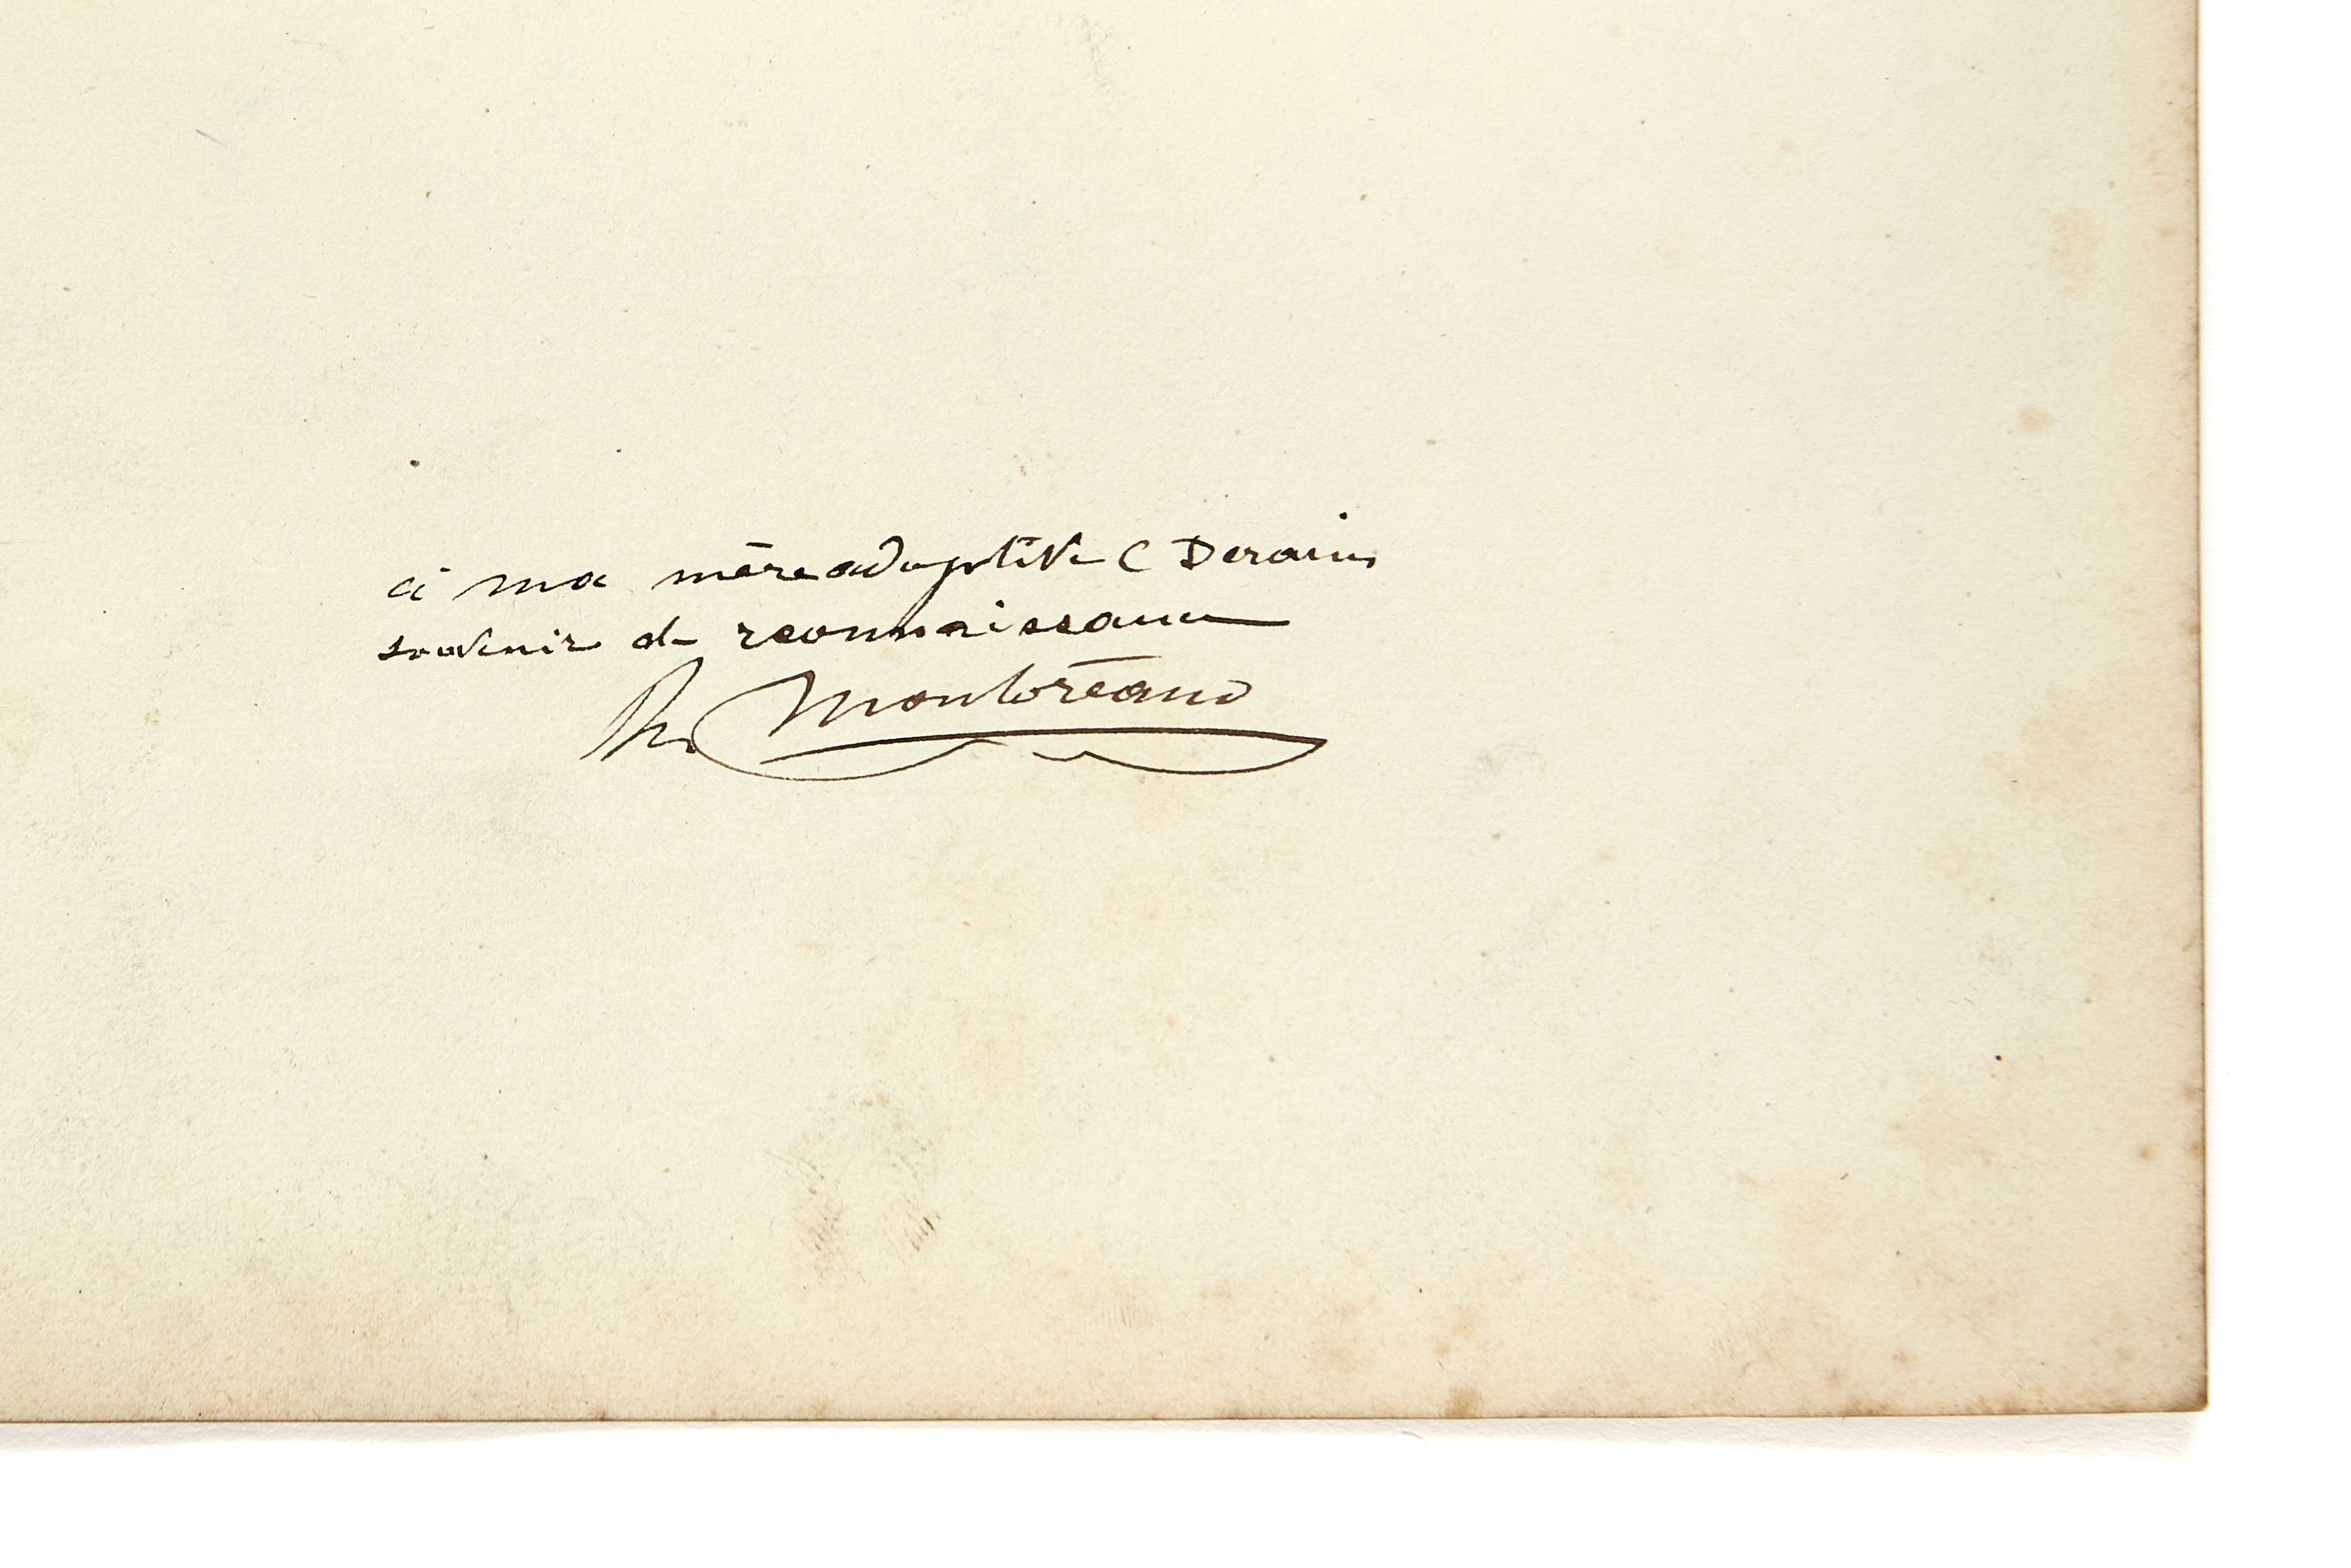 à ma mère adoptive C Derains
souvenir de reconnaissance
Montoréano